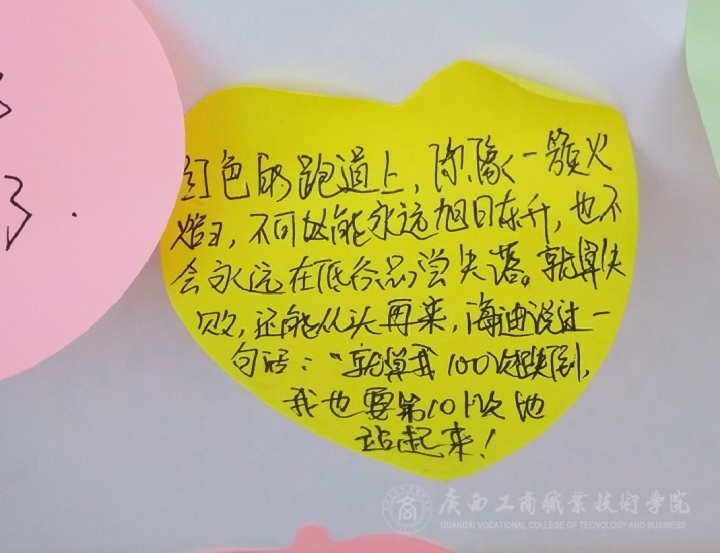 了.
红色的跑道上,你像一颗火
焰,不可能永远旭日东升,也不
会永远在低谷品尝失落。就算失
败,还能从头再来,海迪说过一
句话:“就算我100次跌倒,
我也要第101次地
站起来!
廣西工商職業技術學院
GUANGXI VOCATIONAL COLLEGE OF TECNOLOGY AND BUSINESS